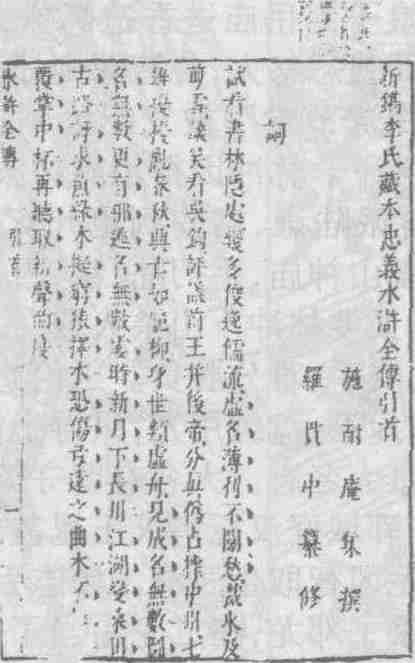 新鐫李氏藏本忠義水滸全傳引首
施耐庵集撰
羅貫中纂修
詞
試看書林隱處幾多俊逸儒流虛名薄利不關愁裁冰及
剪雪談笑看吳鉤評議前王并後帝分真偽占據中州七
雄擾擾亂春秋興亡如脆柳身世類虛舟見成名無數圖
名無數更有那逃名無數霎時新月下長川江湖變桑田
古路訝求魚緣木擬窮猿擇木恐傷弓遠之曲木不
覆掌中杯再聽取新聲曲度
水滸全傳 引首 一